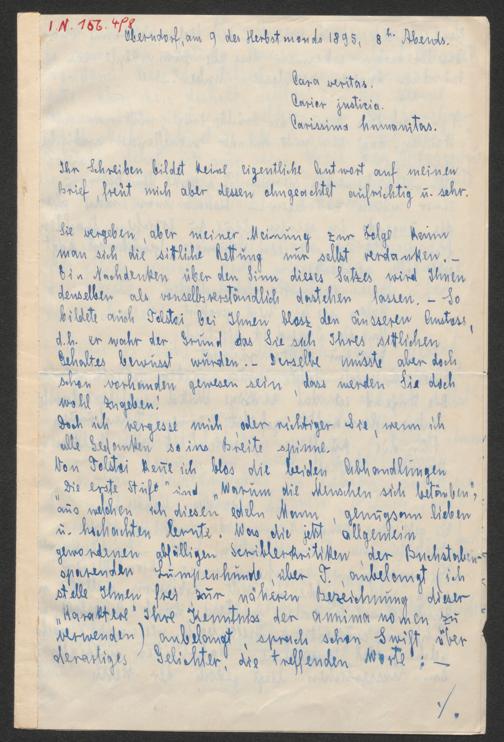 I.N. 166.498
Oberndorf, am 9 des Herbstmonds 1895, 8 h. Abends.
Cara veritas.
Carior justicia.
Carissima humanitas.
Ihr Schreiben bildet keine eigentliche Antwort auf meinen
Brief, freut mich aber dessen ohngeachtet aufrichtig u. sehr.
Sie vergeben, aber meiner Meinung zur Folge kann
man sich die sittliche Rettung nur selbst verdanken. –
Ein Nachdenken über den Sinn dieses Satzes wird Ihnen
denselben als vonselbverständlich dastehen lassen. – So
bildete auch Tolstoi bei Ihnen blosz den äusseren Anstosz,
d.h. er wahr der Grund das Sie sich Ihres sittlichen
Gehaltes bewusst wurden. – Derselbe müsste aber doch
schon vorhanden gewesen sein, dass werden Sie doch
wohl zugeben!
Doch ich vergesse mich oder richtiger Sie, wenn ich
alle Gedanken so ins Breite spinne.
Von Tolstoi kene ich blos die beiden Abhandlungen
„Die erste Stufe" und „Warum die Menschen sich betäuben",
aus welchen ich diesen edeln Mann, genugsam lieben
u. hochachten lernte. Was die jetzt allgemein
gewordenen abfälligen Scriblerkritiken, der Buchstaben-
sparenden Lumpenhunde, über T., anbelangt (ich
stelle Ihnen frei zur näheren Bezeichnung dieser
„Karaktere" Ihre Kenntniss der annima nomen zu
verwenden) anbelangt, sprach schon Swift über
derartiges Gelichter, die treffenden Worte: –
./.